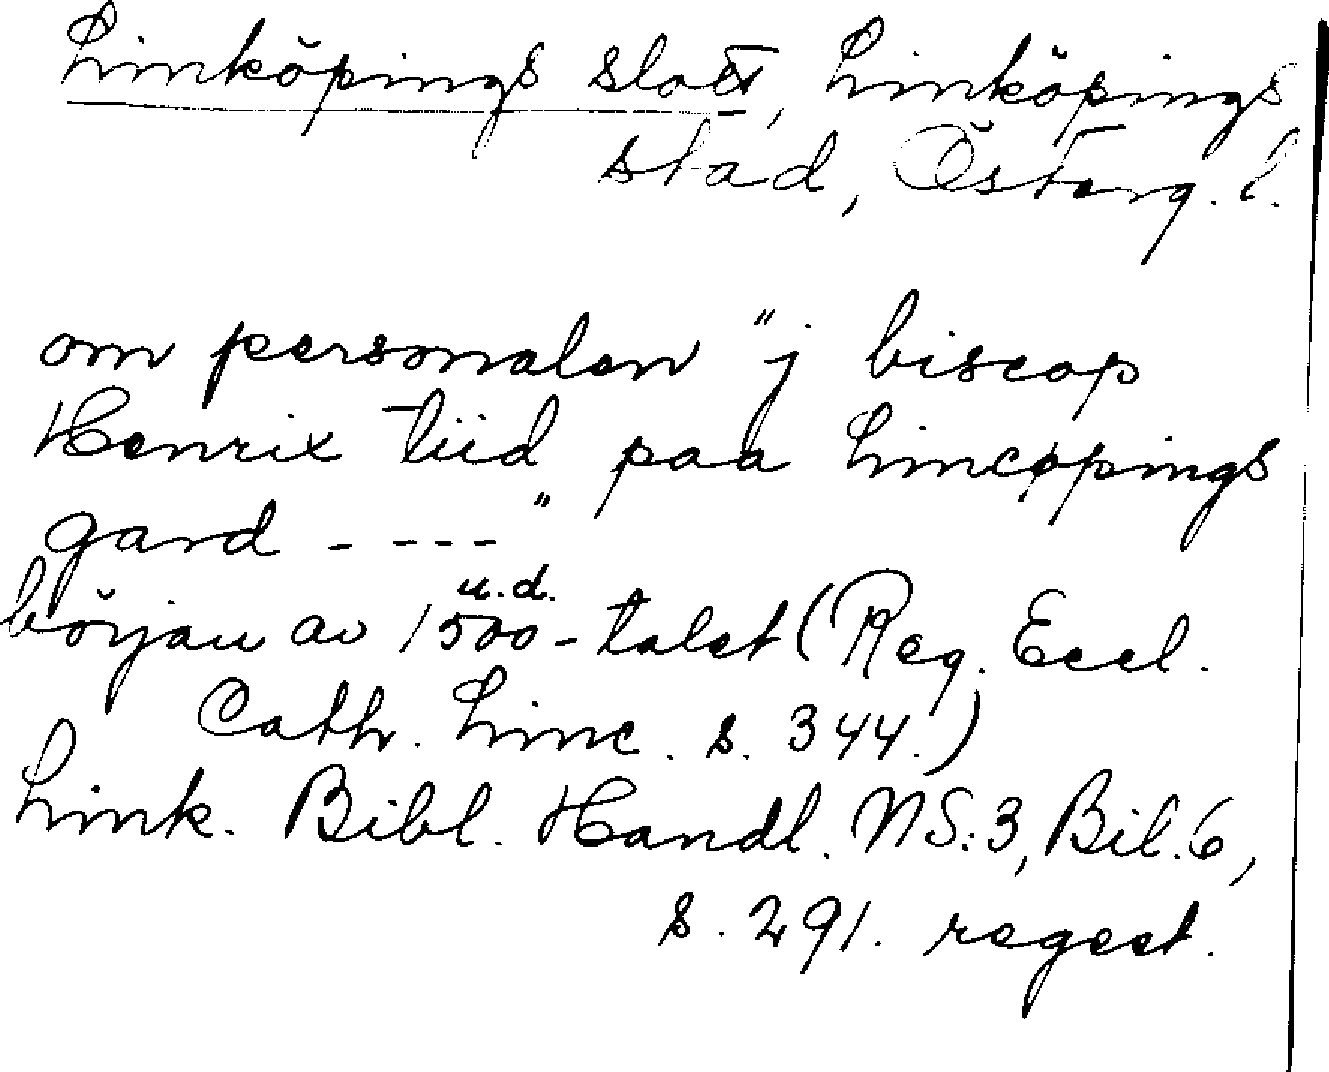 Linköpings slott, Linköpings
stad, Österg. l.
om personalen "j biscop
Henrix tiid paa Lincøpings
gard - - - -"
u.d.
början av 1500-talet (Reg. Eccl.
Cath. Linc. s. 344.)
Link. Bibl. Handl. NS:3, Bil.6,
s. 291. regest.